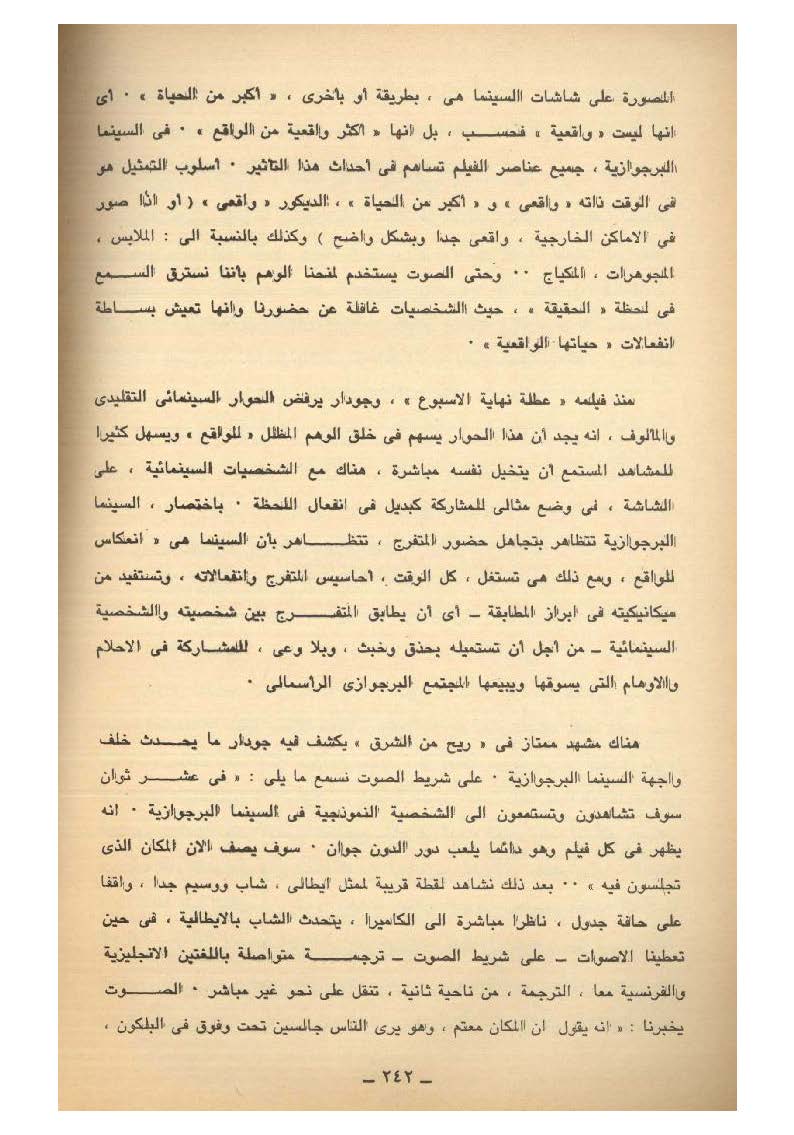 المصورة على شاشات السينما هى ، بطريقة أو بأخرى ، « أكبر من الحياة » ٠ أى
انها ليست « واقعية » فحسب ، بل انها « أكثر واقعية من الواقع » ٠ فى السينما
البرجوازية ، جميع عناصر الفيلم تساهم فى احداث هذا التأثير ٠ أسلوب التمثيل هو
فى الوقت ذاته « واقعى » و « أكبر من الحياة » ، الديكور « واقعى » ( أو اذا صور
في الاماكن الخارجية ، واقعى جدا وبشكل واضح ) وكذلك بالنسبة الى : الملابس ،
المجوهرات ، المكياج ٠٠ وحتى الصوت يستخدم لمنحنا الوهم بأننا نسترق السمع
فى لحظة « الحقيقة » ، حيث الشخصيات غافلة عن حضورنا وانها تعيش بساطة
انفعالات « حياتها الواقعية » ٠
منذ فيلمه « عطلة نهاية الاسبوع » ، وجودار يرفض الحوار السينمائى التقليدى
والمألوف ، انه يجد أن هذا الحوار يسهم فى خلق الوهم المظلل « للواقع » ويسهل كثيرا
للمشاهد المستمع أن يتخيل نفسه مباشرة ، هناك مع الشخصيات السينمائية ، على
الشاشة ، فى وضع مثالى للمشاركة كبديل فى انفعال اللحظة ٠ باختصار ، السينما
البرجوازية تتظاهر بتجاهل حضور المتفرج ، تتظاهر بأن السينما هى « انعكاس
للواقع ، ومع ذلك هى تستغل ، كل الوقت ، أحاسيس المتفرج وانفعالاته ، وتستفيد من
ميكانيكيته فى ابراز المطابقة ــ أى أن يطابق المتفرج بين شخصيته والشخصية
السينمائية ــ من أجل أن تستميله بحذق وخبث ، وبلا وعى ، للمشاركة فى الاحلام
والاوهام التى يسوقها ويبيعها المجتمع البرجوازى الرأسمالى ٠
هناك مشهد ممتاز فى « ريح من الشرق » يكشف فيه جودار ما يحدث خلف
واجهة السينما البرجوازية ٠ على شريط الصوت نسمع ما يلى : « فى عشر ثوان
سوف تشاهدون وتستمعون الى الشخصية النموذجية فى السينما البرجوازية ٠ انه
يظهر فى كل فيلم وهو دائما يلعب دور الدون جوان ٠ سوف يصف الان المكان الذى
تجلسون فيه » ٠٠ بعد ذلك نشاهد لقطة قريبة لممثل ايطالى ، شاب ووسيم جدا ، واقفا
على حافة جدول ، ناظرا مباشرة الى الكاميرا ، يتحدث الشاب بالايطالية ، فى حين
تعطينا الاصوات ــ على شريط الصوت ــ ترجمة متواصلة باللغتين الانجليزية
والفرنسية معا ، الترجمة ، من ناحية ثانية ، تنقل على نحو غير مباشر ٠ الصوت
يخبرنا : « انه يقول ان المكان معتم ، وهو يرى الناس جالسين تحت وفوق فى البلكون ،
ــ ٢٤٢ ــ